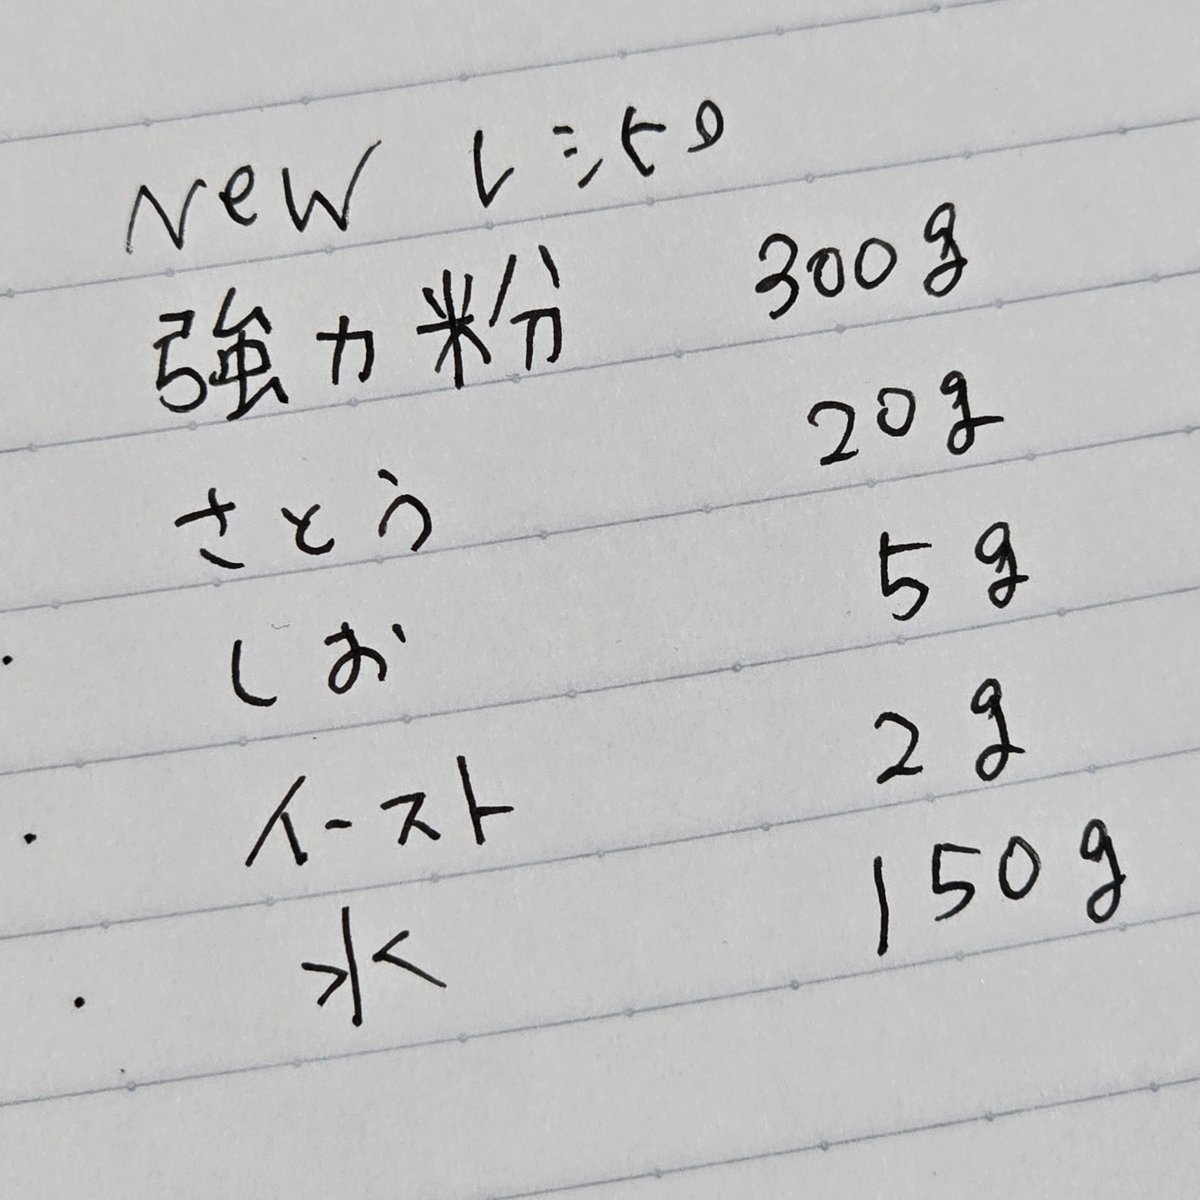 New レシピ
強力粉 300g
さとう 20g
しお 5g
イースト 2g
水 150g